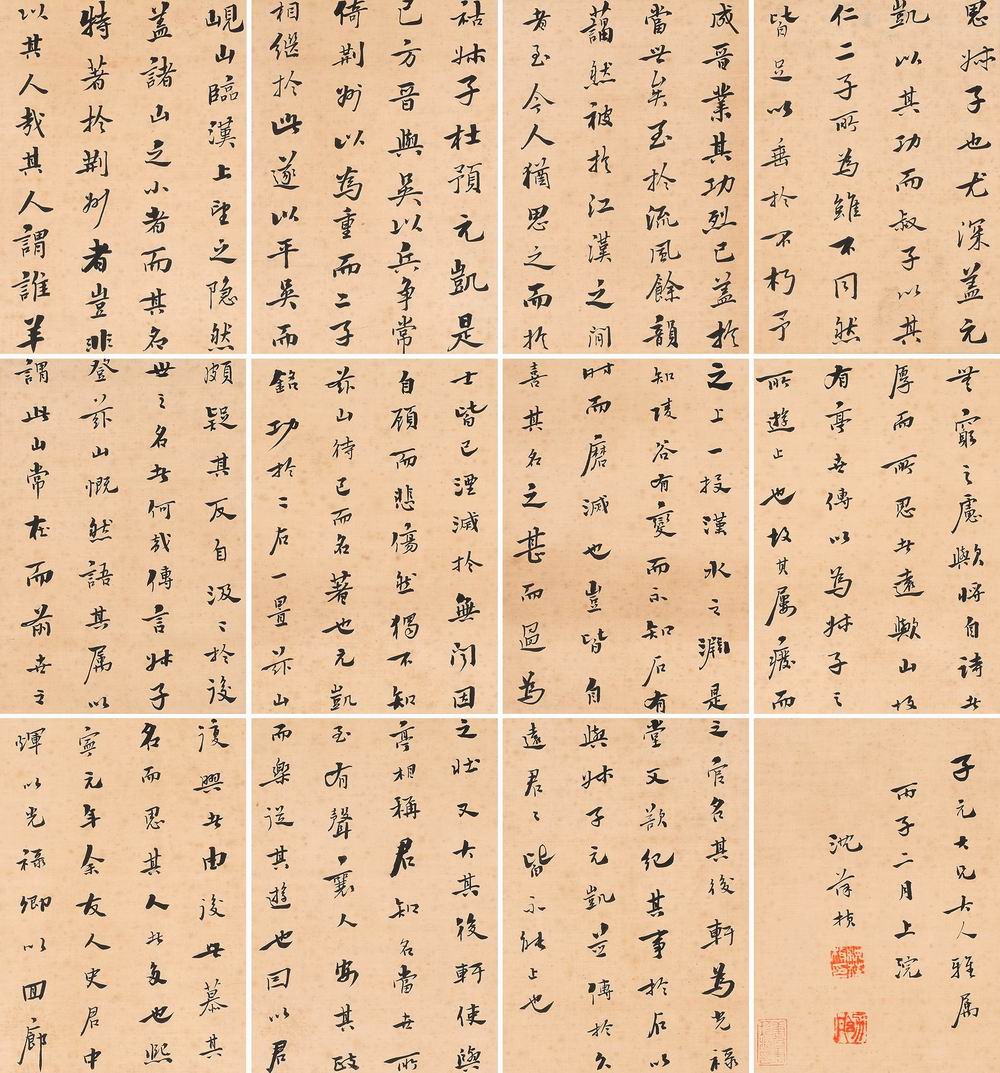 峴山臨漢上望之隐然
盖諸山之小者而其名
特著於荆州者豈非
以其人哉其人謂誰羊
祜叔子杜預元凱是
已方晋與吴以兵争常
倚荆州以為重而二子
相继於此遂以平吴而
成晋業其功烈已盖於
當世矣至於流風餘韻
藹然被於江漢之間
者至今人猶思之而於
思叔子也尤深盖元
凱以其功而叔子以其
仁二子所為雖不同然
皆足以垂於不朽予
頗疑其反自汲〻於後
世之名者何哉傳言叔子
登兹山慨然語其属以
謂此山常在而前世之
士皆已湮滅於無聞因
自顧而悲傷然獨不知
兹山待己而名著也元凱
銘功於二石一置兹山
之上一投漢水之淵是
知陵谷有變而不知石有
时而磨滅也豈皆自
喜其名之甚而過為
無窮之慮歟将自诗者
厚而所思者遠歟山故
有亭世傳以為叔子之
所遊止也故其屡廢而
復興者由後世慕其
名而思其人者多也熙
寧元年余友人史君中
輝以光禄卿以回廊
之壮又大其後軒使與
亭相稱君知名當世所
至有聲襄人安其政
而樂從其遊也因以君
之官名其後軒為光禄
堂又欲纪其事於石以
與叔子元凱並傳於久
遠君〻皆不能止也
子元大兄大人雅属
丙子二月上浣
沈葆楨